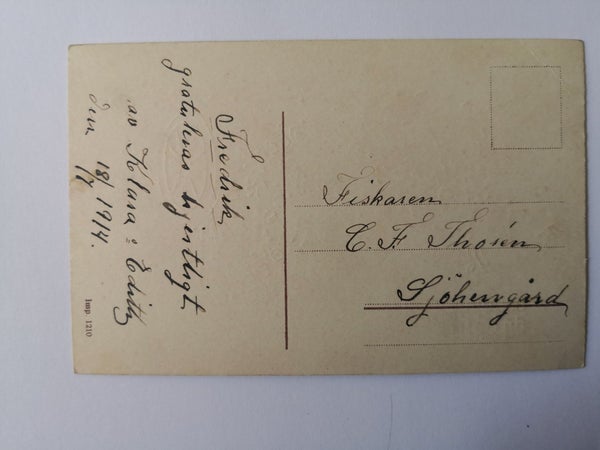 Fredrik
gratuleras hjertligt
av Klara & Edith
den 18/7 1914.
Imp. 1210
Fiskaren
C. F. Thorén
Sjöhemgård